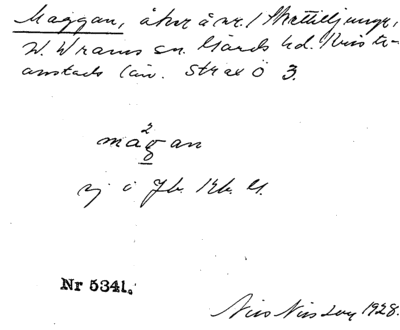 Maggan, åker å nr. 1 Skättiljunga,
W. Wrams sn. Gärds hd. Kristi-
anstads län. Strax Ö 3.
2
magan
ej i Jb.
Nr 5341.
Nils Nilsson 1928.